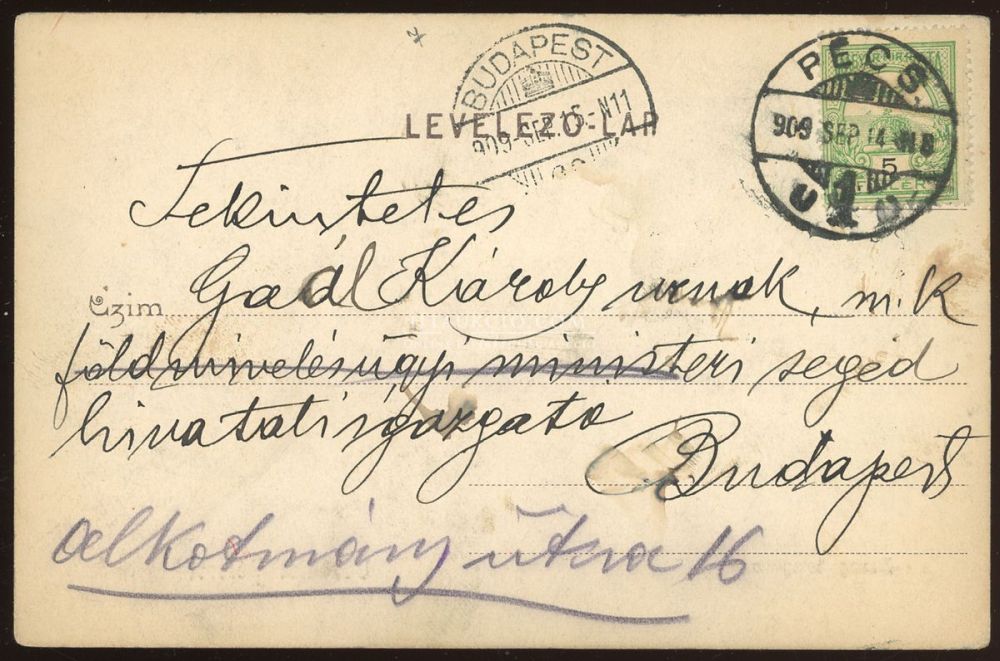 BUDAPEST
909 SEP 15 N11
LEVELEZŐ-LAP
PÉCS
909 SEP 14 N8
1
5
Tekintetes
Czim Gaál Károly urnak, m. k
földmivelésügyi ministeri segéd
hivatali igazgató
Budapest
alkotmány utca 16